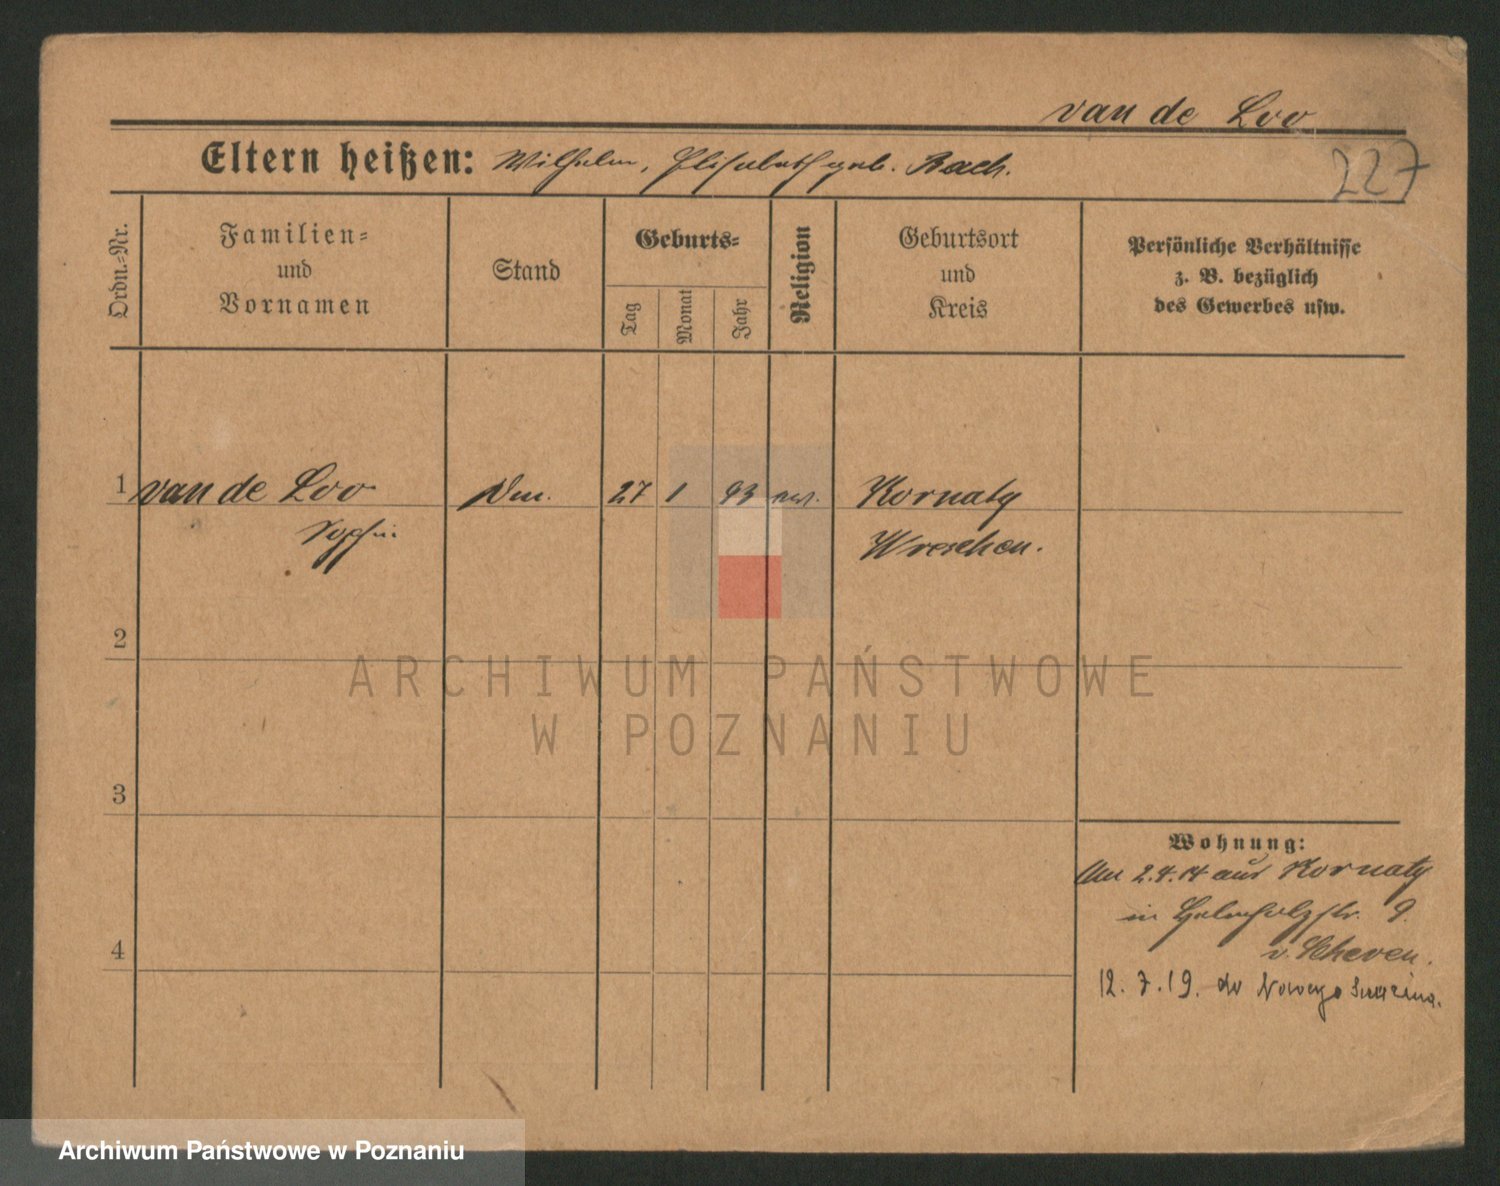 van de Loo
Eltern heißen: Wilhelm, Elisabeth geb. Bach.
227
Ordn.=Nr.
Familien=
und
Vornamen
Stand
Geburts=
Tag
Monat
Jahr
Religion
Geburtsort
und
Kreis
Persönliche Verhältnisse
z. B. bezüglich
des Gewerbes usw.
1 van de Loo 27 1 93 Kornaty
Sophie Wreschen.
2
ARCHIWUM PAŃSTWOWE
W POZNANIU
3
Wohnung:
2.4.14 aus Kornaty
in 9.
v. Scheven.
4
12. 7. 19. do Nowego
Archiwum Państwowe w Poznaniu